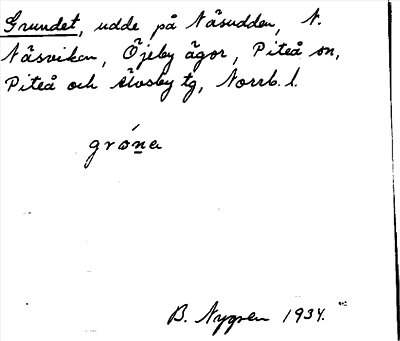 Grundet, udde på Näsudden, N.
Näsviken, Öjeby ägor, Piteå sn,
Piteå och Älvsby tg, Norrb. l.
grṓn̲a
B. Nygren 1934.